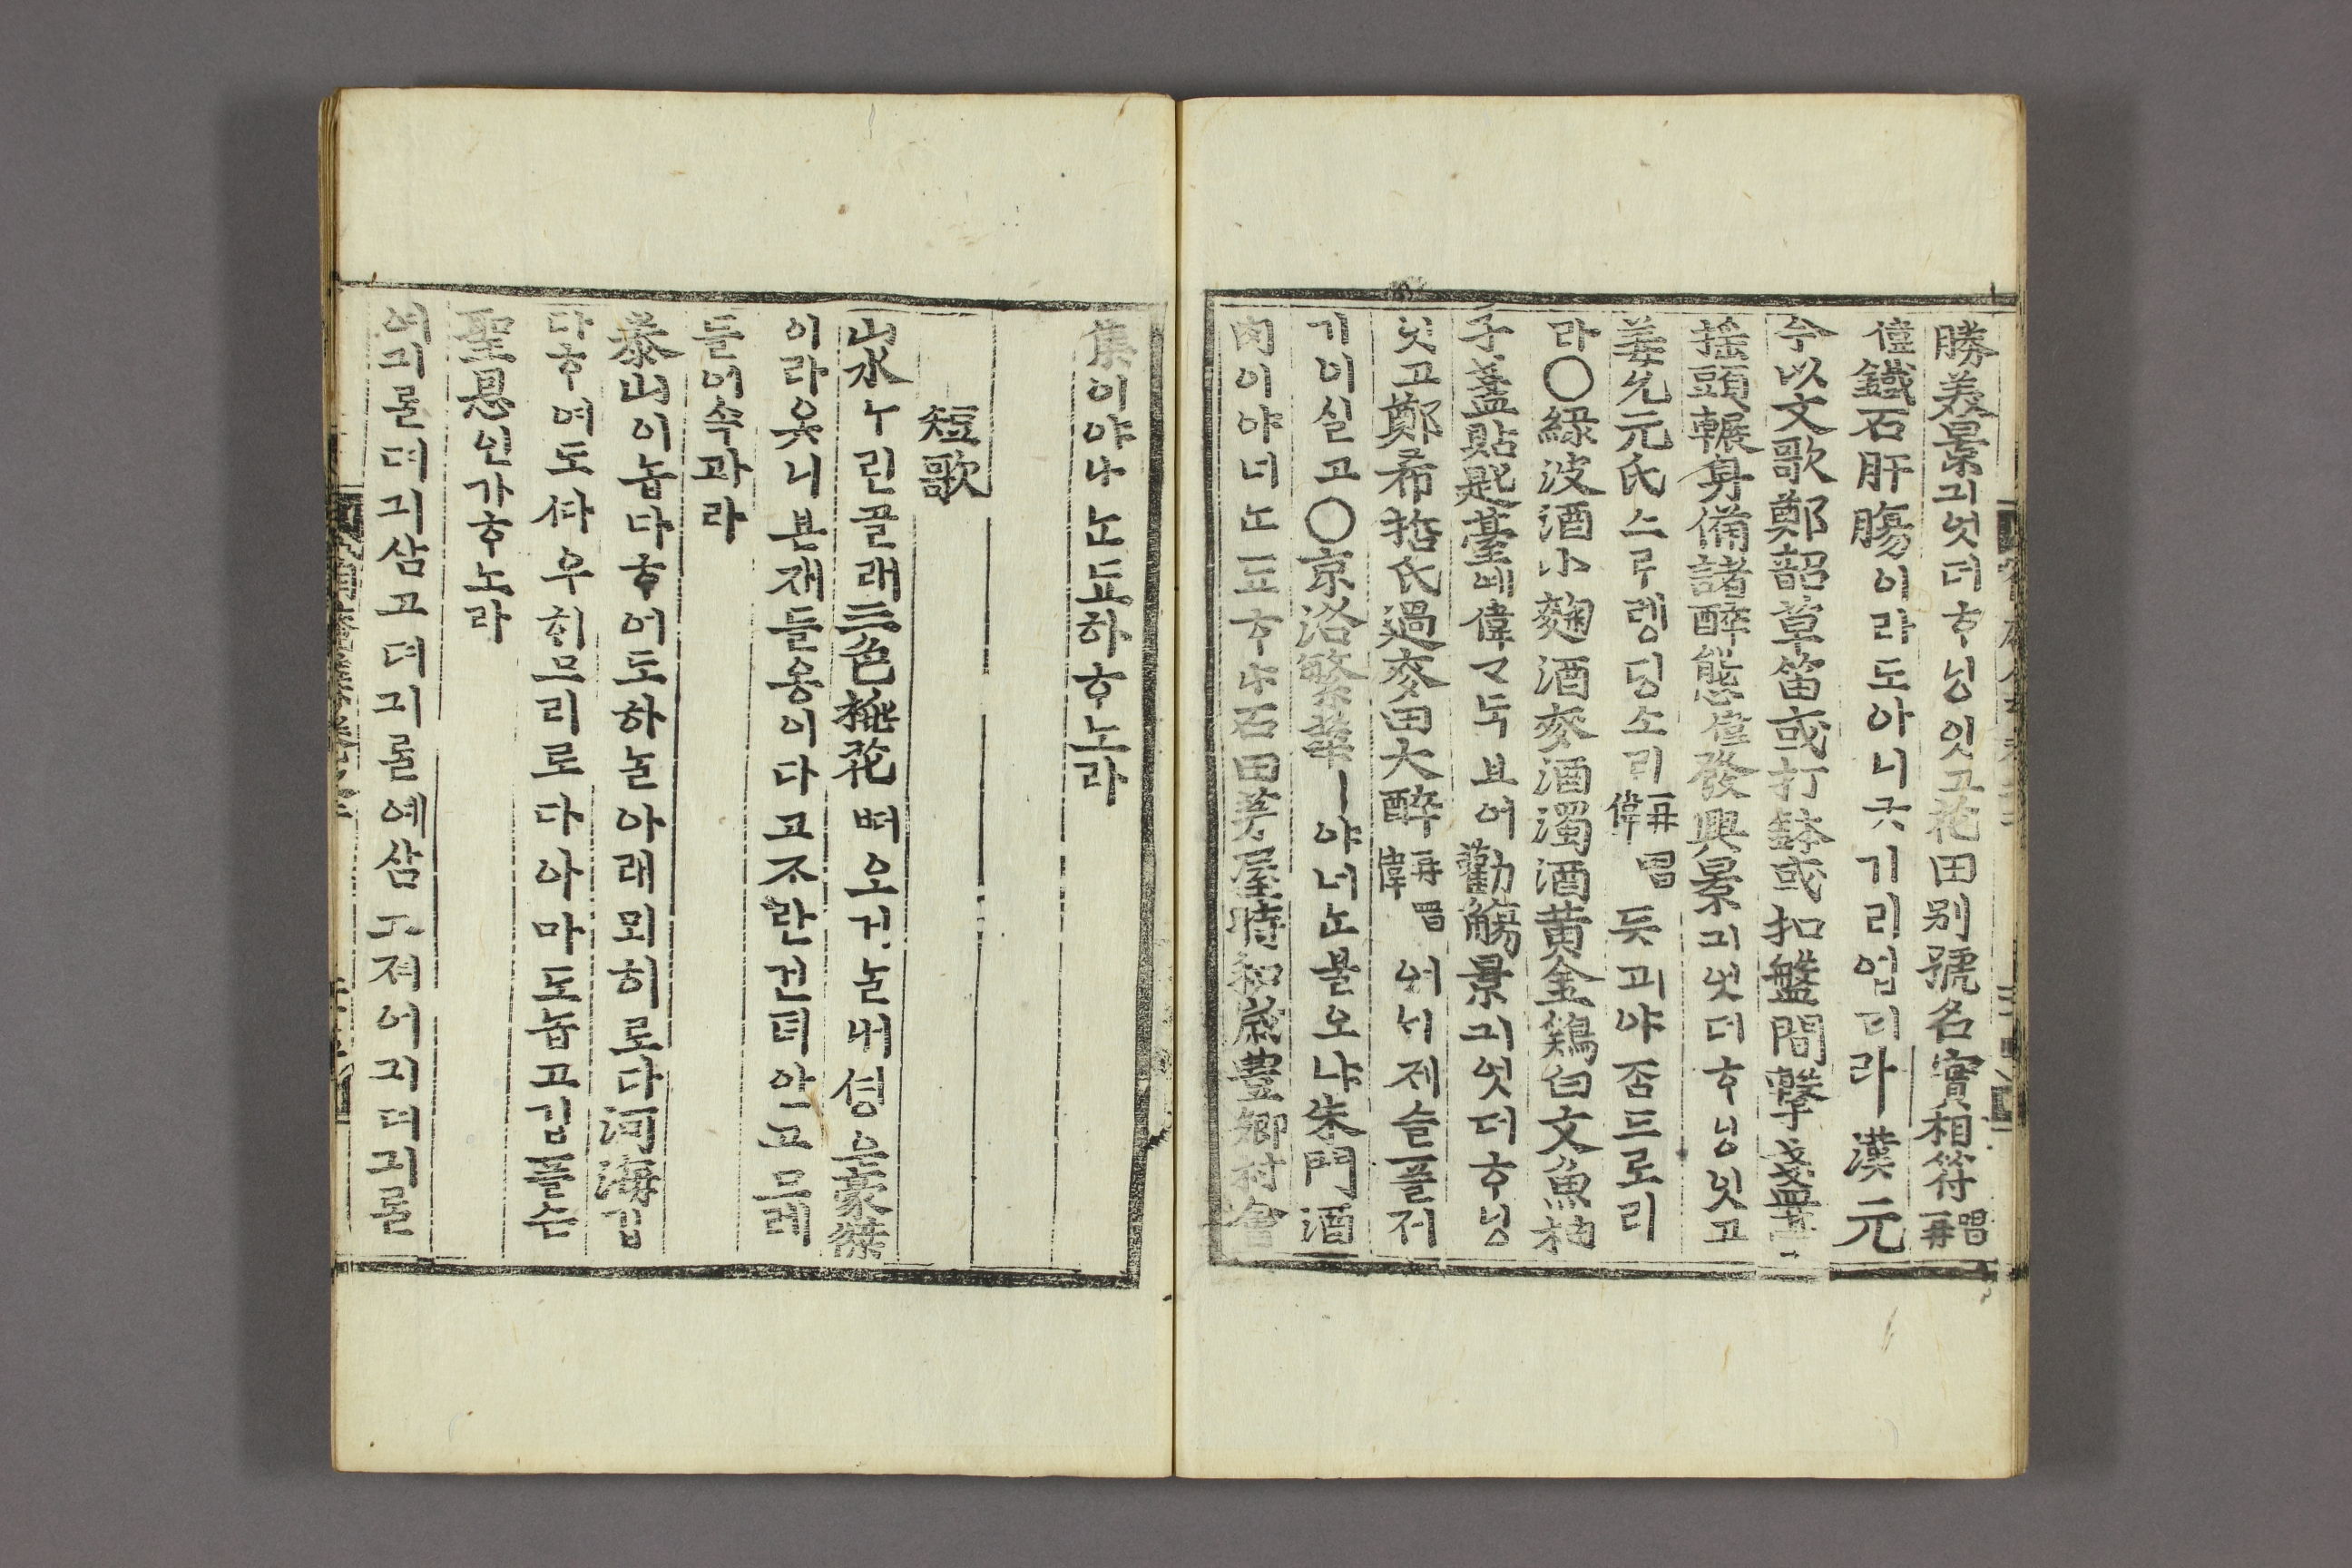 勝美景긔엇더ᄒᆞ닝잇고花田別號名實相符再唱
偉鐵石肝膓이라도아니긋기리업더라 漢元
今以文歌鄭韶草笛或打鉢或扣盤間擊盞臺
搖頭輾身備諸醉態偉發興景긔엇더ᄒᆞ닝잇고
姜允元氏스루렝딩소리再唱偉듯괴야ᄌᆞᆷ드로리
라○綠波酒小麴酒麥酒濁酒黃金鷄白文魚柚
子盞貼匙臺예偉ᄀᆞᄃᆞᆨ브어勸觴景긔엇더ᄒᆞ닝
잇고鄭希哲氏過麥田大醉再唱偉어ᄂᆡ제슬플저
기이실고○京洛繁華ㅣ야너ᄂᆞᆫ불오냐朱門酒
肉이야너ᄂᆞᆫ됴ᄒᆞ냐石田茅屋時和歲豊鄕村會
集이야나ᄂᆞᆫ됴하ᄒᆞ노라
短歌
山水ᄂᆞ린골래三色桃花ᄠᅥ오거ᄂᆞᆯ내셩은豪傑
이라옷니븐재들옹이다고ᄌᆞ란건뎌안고므레
들어속과라
泰山이놉다ᄒᆞ여도하ᄂᆞᆯ아래뫼히로다河海깁
다ᄒᆞ여도ᄯᅡ우희므리로다아마도놉고깁플ᄉᆞᆫ
聖恩인가ᄒᆞ노라
여긔ᄅᆞᆯ뎌긔삼고뎌긔ᄅᆞᆯ예삼고져여긔뎌긔ᄅᆞᆯ